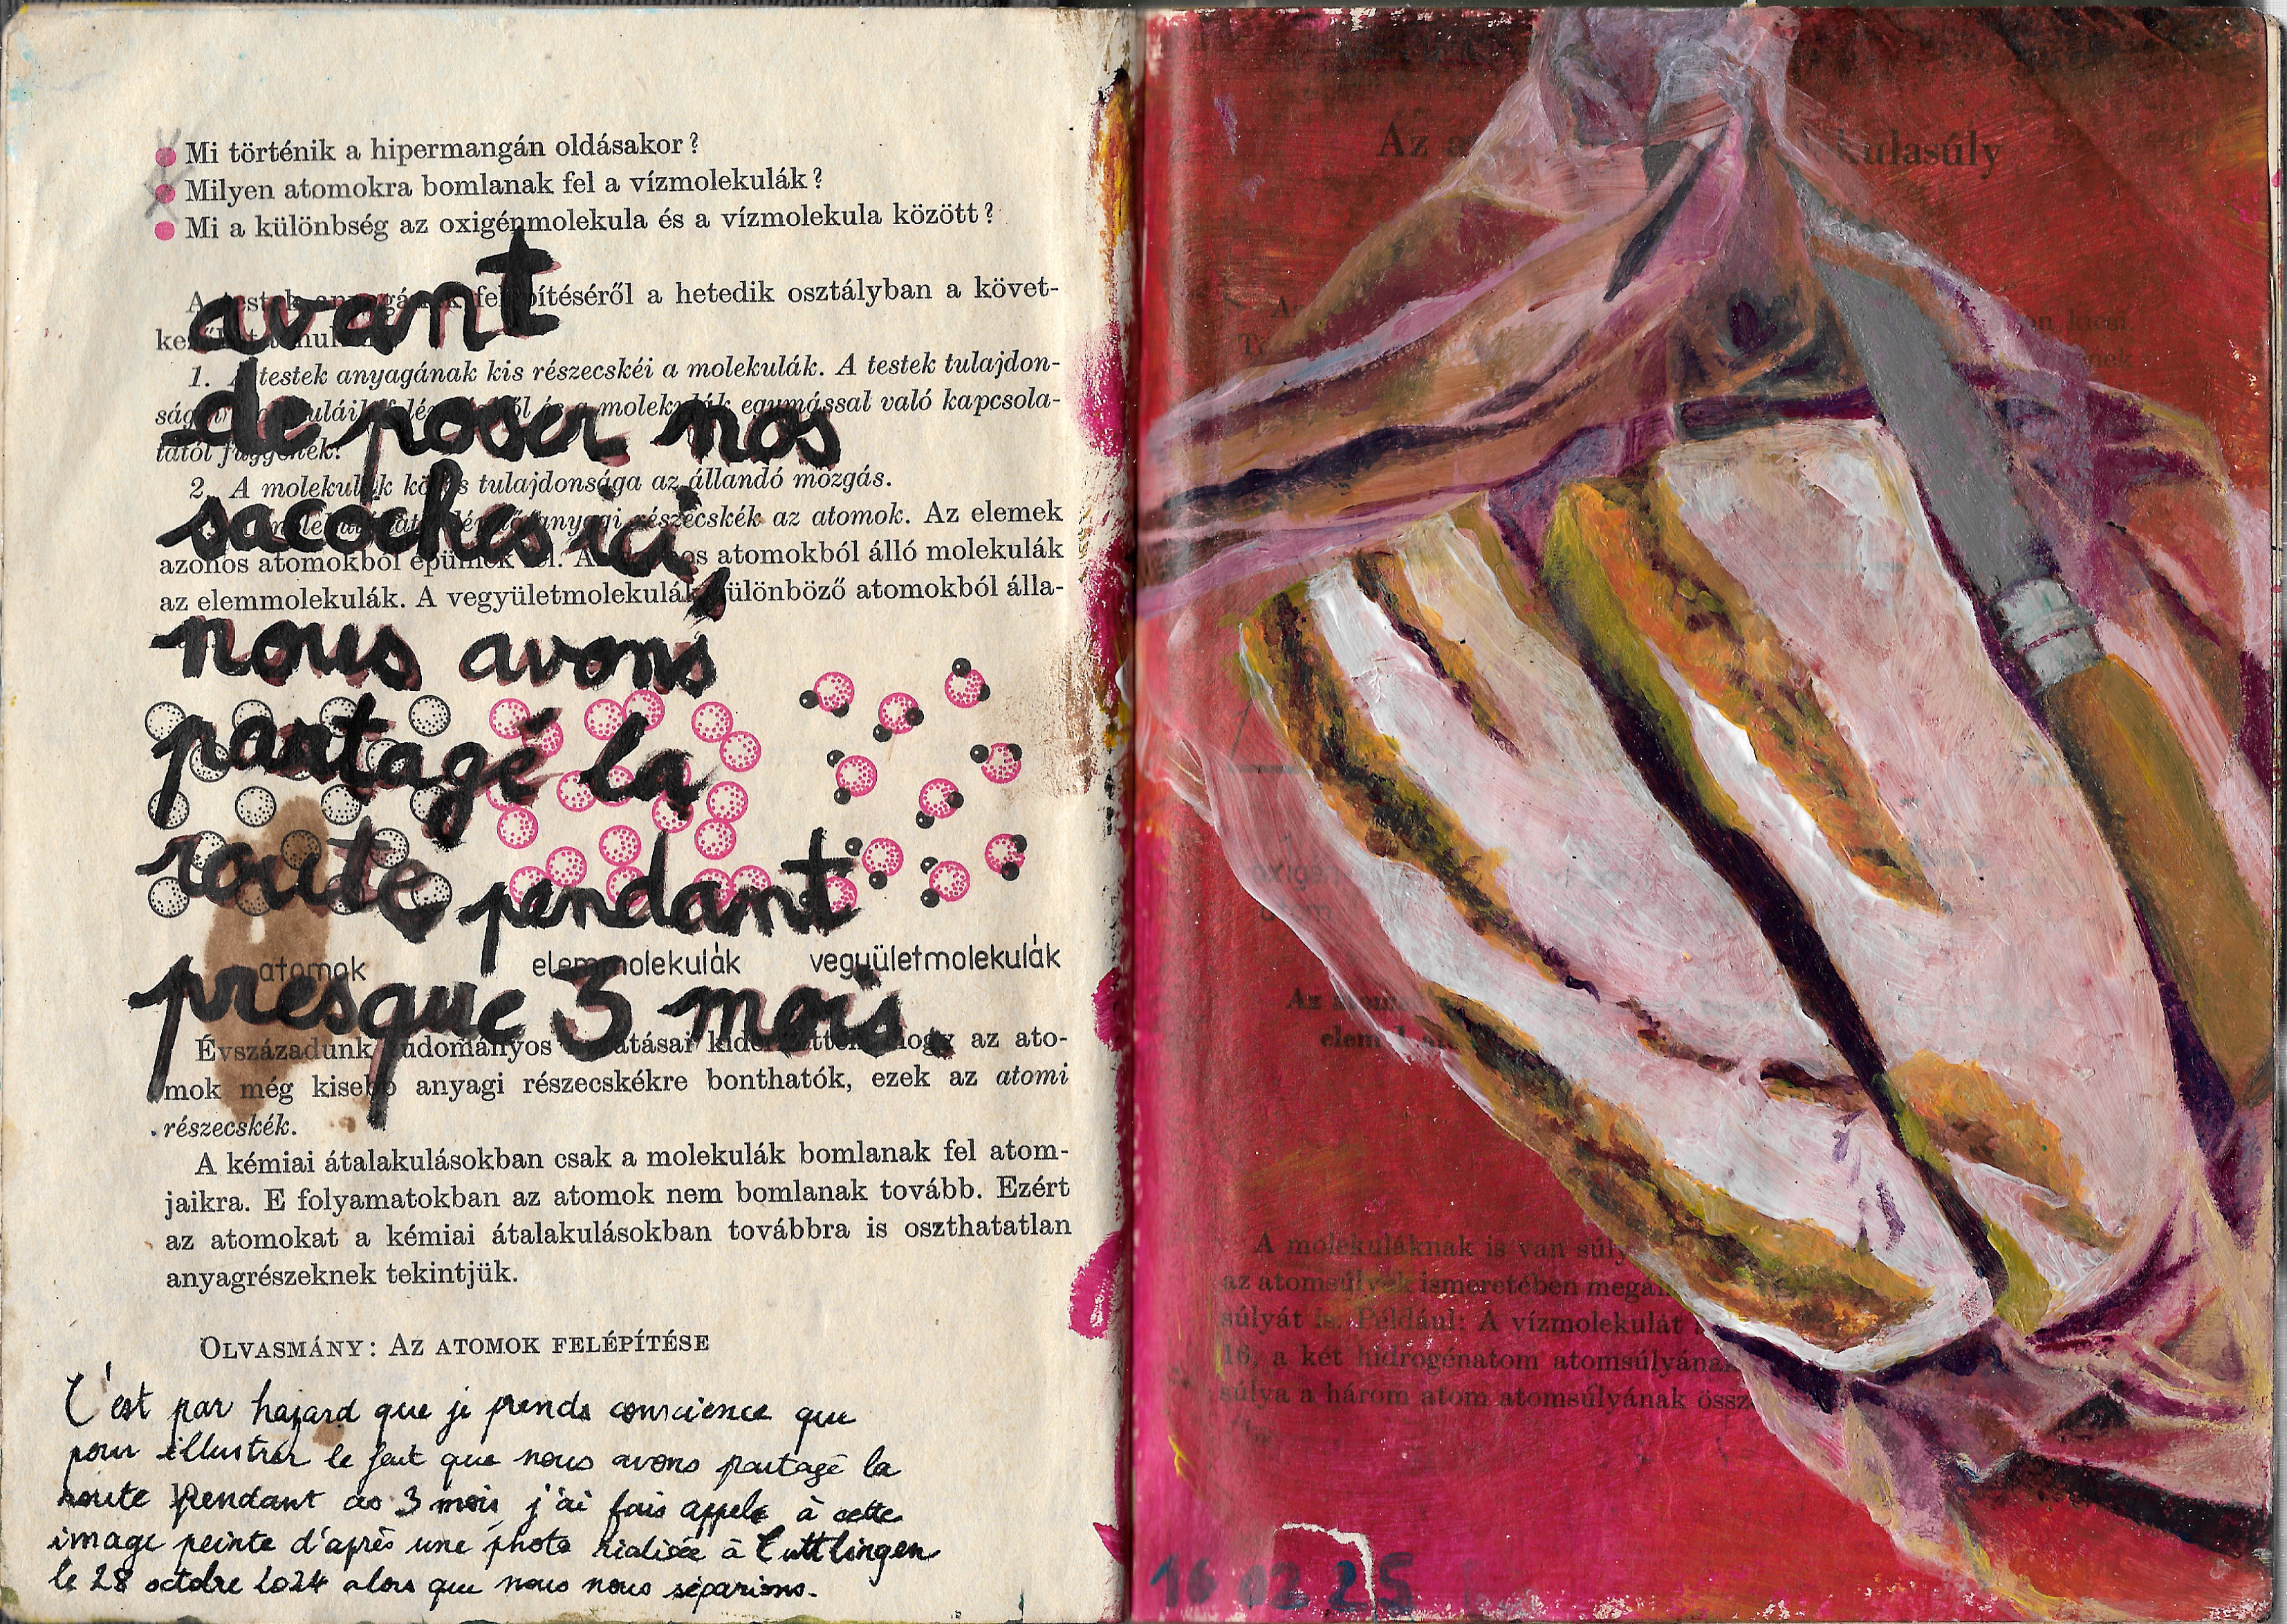 Mi történik a hipermangán oldásakor?
Milyen atomokra bomlanak fel a vízmolekulák?
Mi a különbség az oxigénmolekula és a vízmolekula között?
felépítéséről a hetedik osztályban a követ-
avant
1. A testek anyagának kis részecskéi a molekulák. A testek tulajdon-
és a molekulák egymással való kapcsola-
de poser nos
tától függenek.
2. A molekulák közös tulajdonsága az állandó mozgás.
anyagi részecskék az atomok. Az elemek
sacoches ici,
azonos atomokból épülnek fel. atomokból álló molekulák
az elemmolekulák. A vegyületmolekulák különböző atomokból álla-
nous avons
partagé la
route pendant
atomok elemmolekulák vegyületmolekulák
presque 3 mois
Évszázadunk tudományos hogy az ato-
mok még kisebb anyagi részecskékre bonthatók, ezek az atomi
részecskék.
A kémiai átalakulásokban csak a molekulák bomlanak fel atom-
jaikra. E folyamatokban az atomok nem bomlanak tovább. Ezért
az atomokat a kémiai átalakulásokban továbbra is oszthatatlan
anyagrészeknek tekintjük.
OLVASMÁNY: AZ ATOMOK FELÉPÍTÉSE
C'est par hazard que je prends conscience que
pour illustrer le fait que nous avons partagé la
route pendant ces 3 mois, j'ai fais appele à cette
image peinte d'après une photo réalisée à Tuttlingen
le 28 octobre 2024 alors que nous nous séparions.
Az
kulasúly
on kicsi.
oxigé
atom
Az
elem
A molekuláknak is van súly
az atomsúlyok ismeretében megál
súlyát is. Például: A vízmolekulát
16, a két hidrogénatom atomsúlyána
súlya a három atom atomsúlyának össz
16 02 25